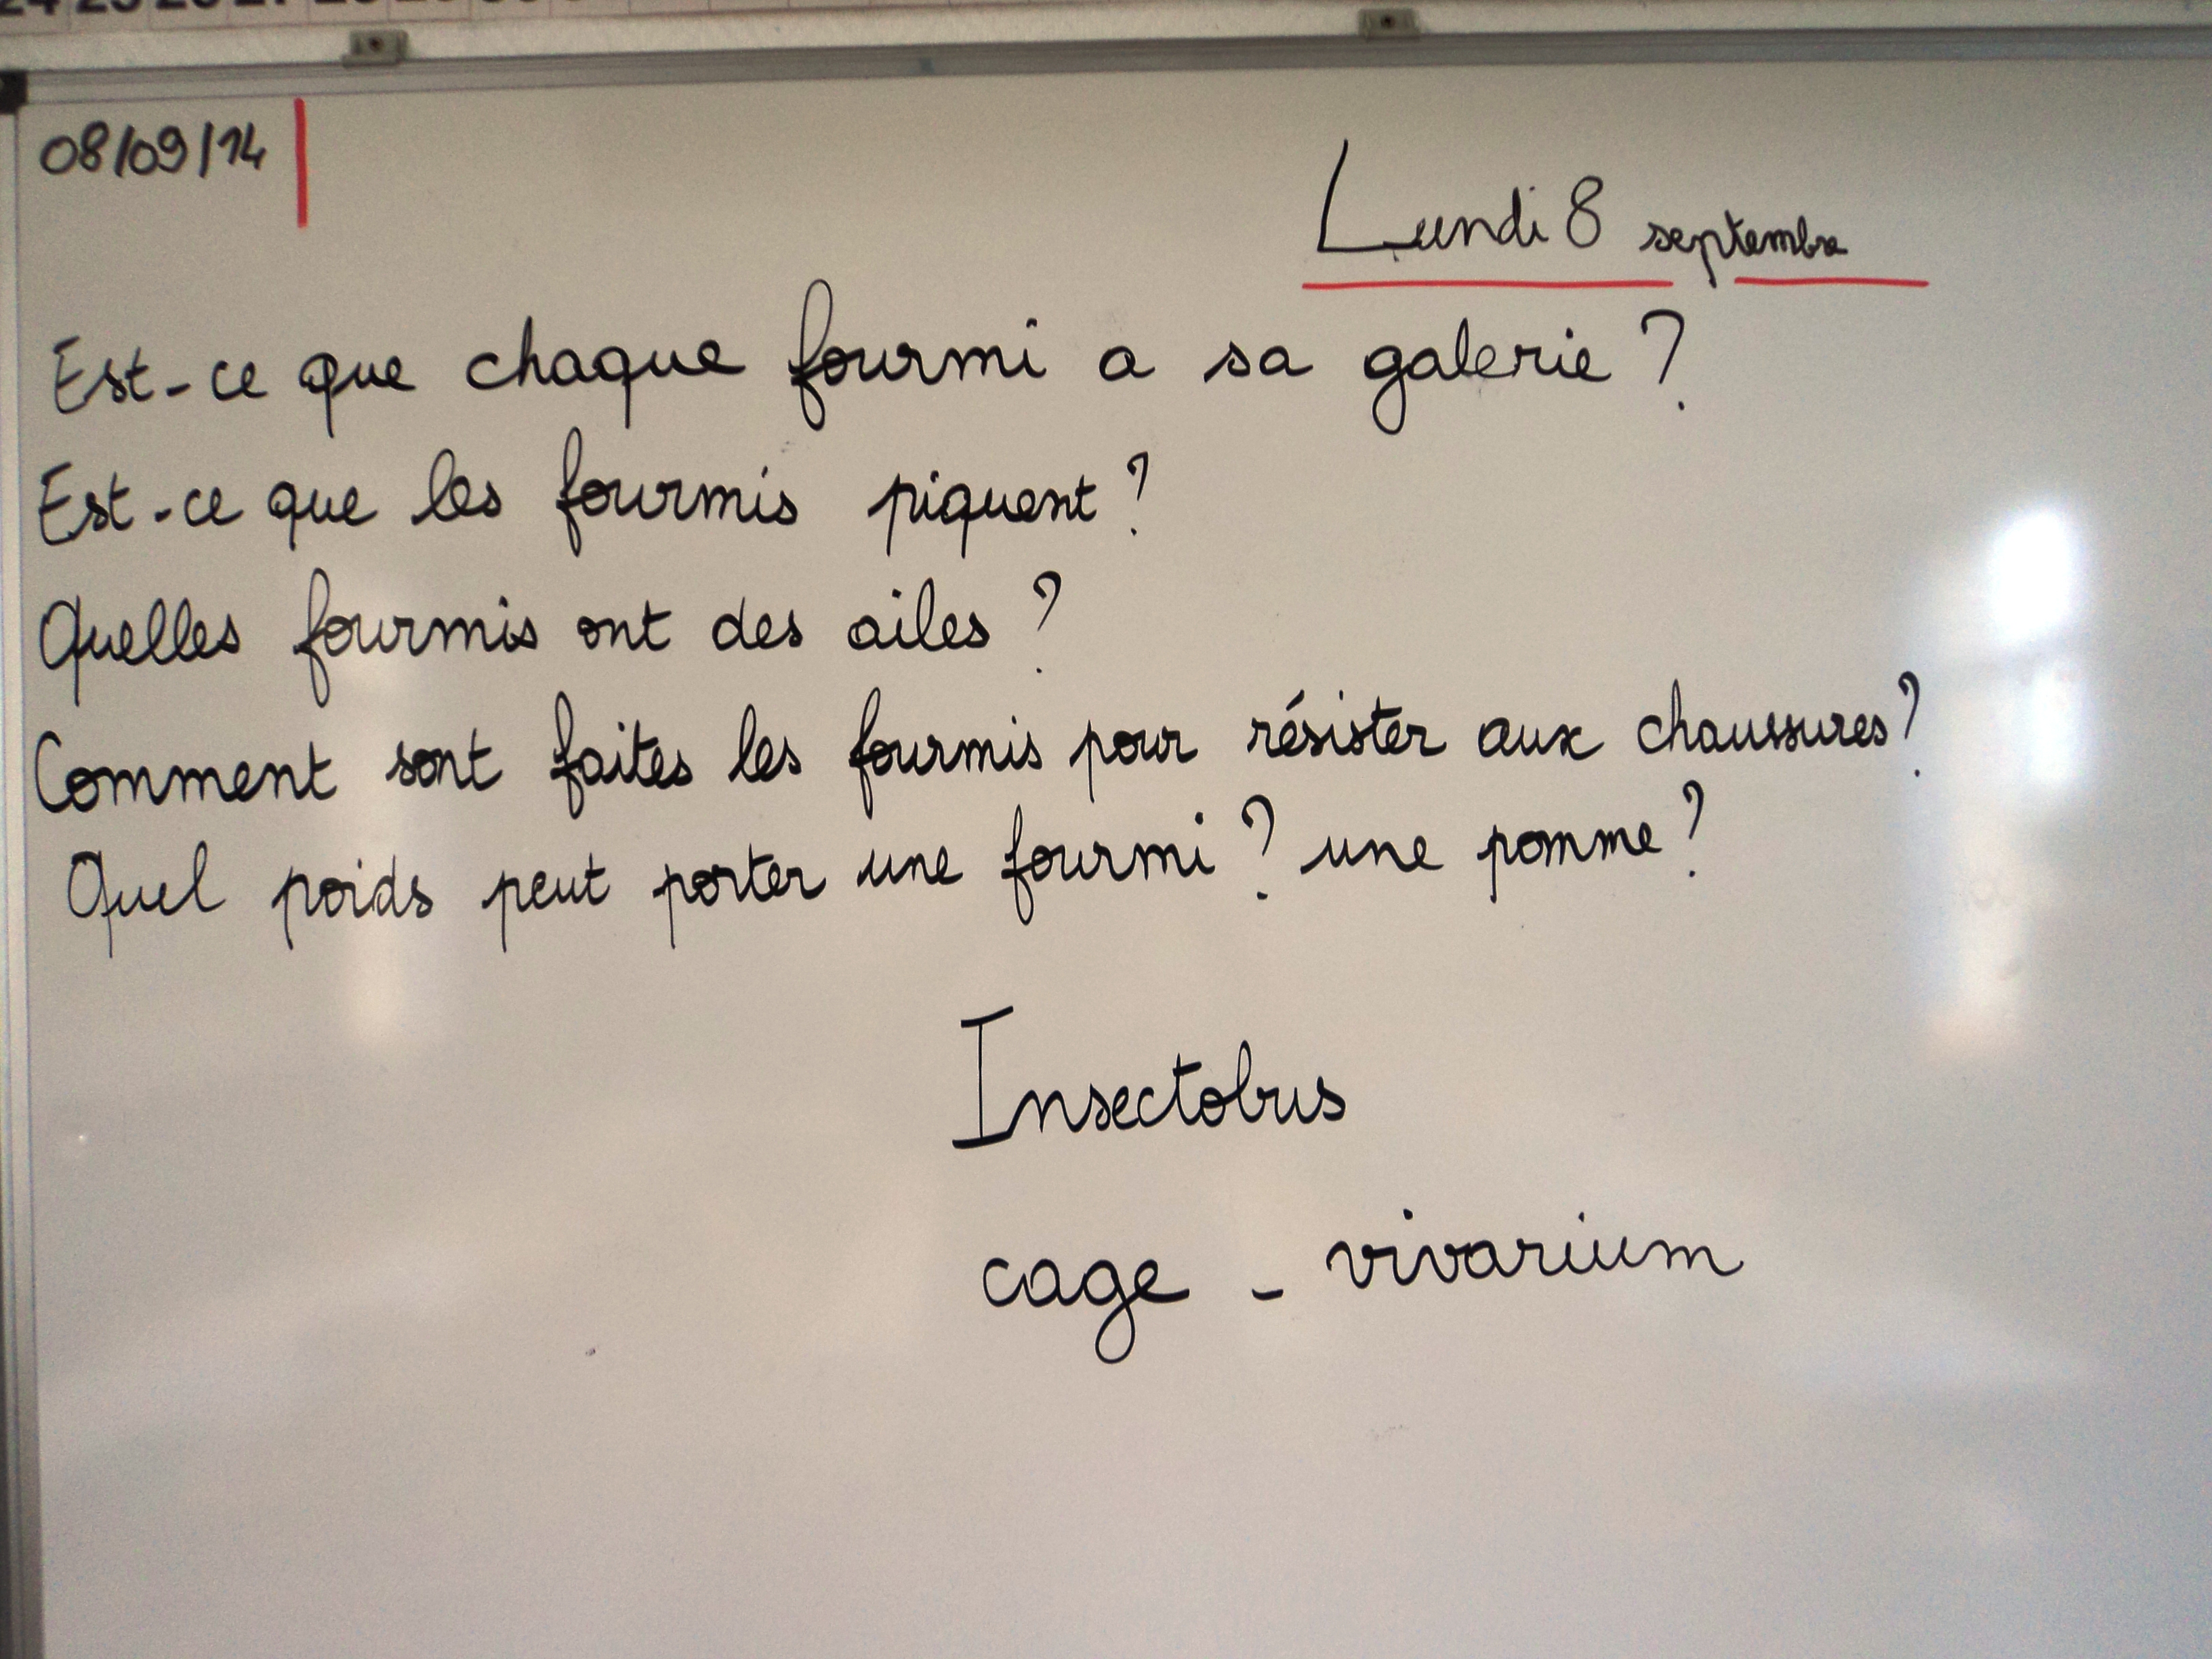 08/09/14
Lundi 8 septembre
Est-ce que chaque fourmi a sa galerie ?
Est-ce que les fourmis piquent ?
Quelles fourmis ont des ailes ?
Comment sont faites les fourmis pour résister aux chaussures ?
Quel poids peut porter une fourmi ? une pomme ?
Insectobus
cage - vivarium